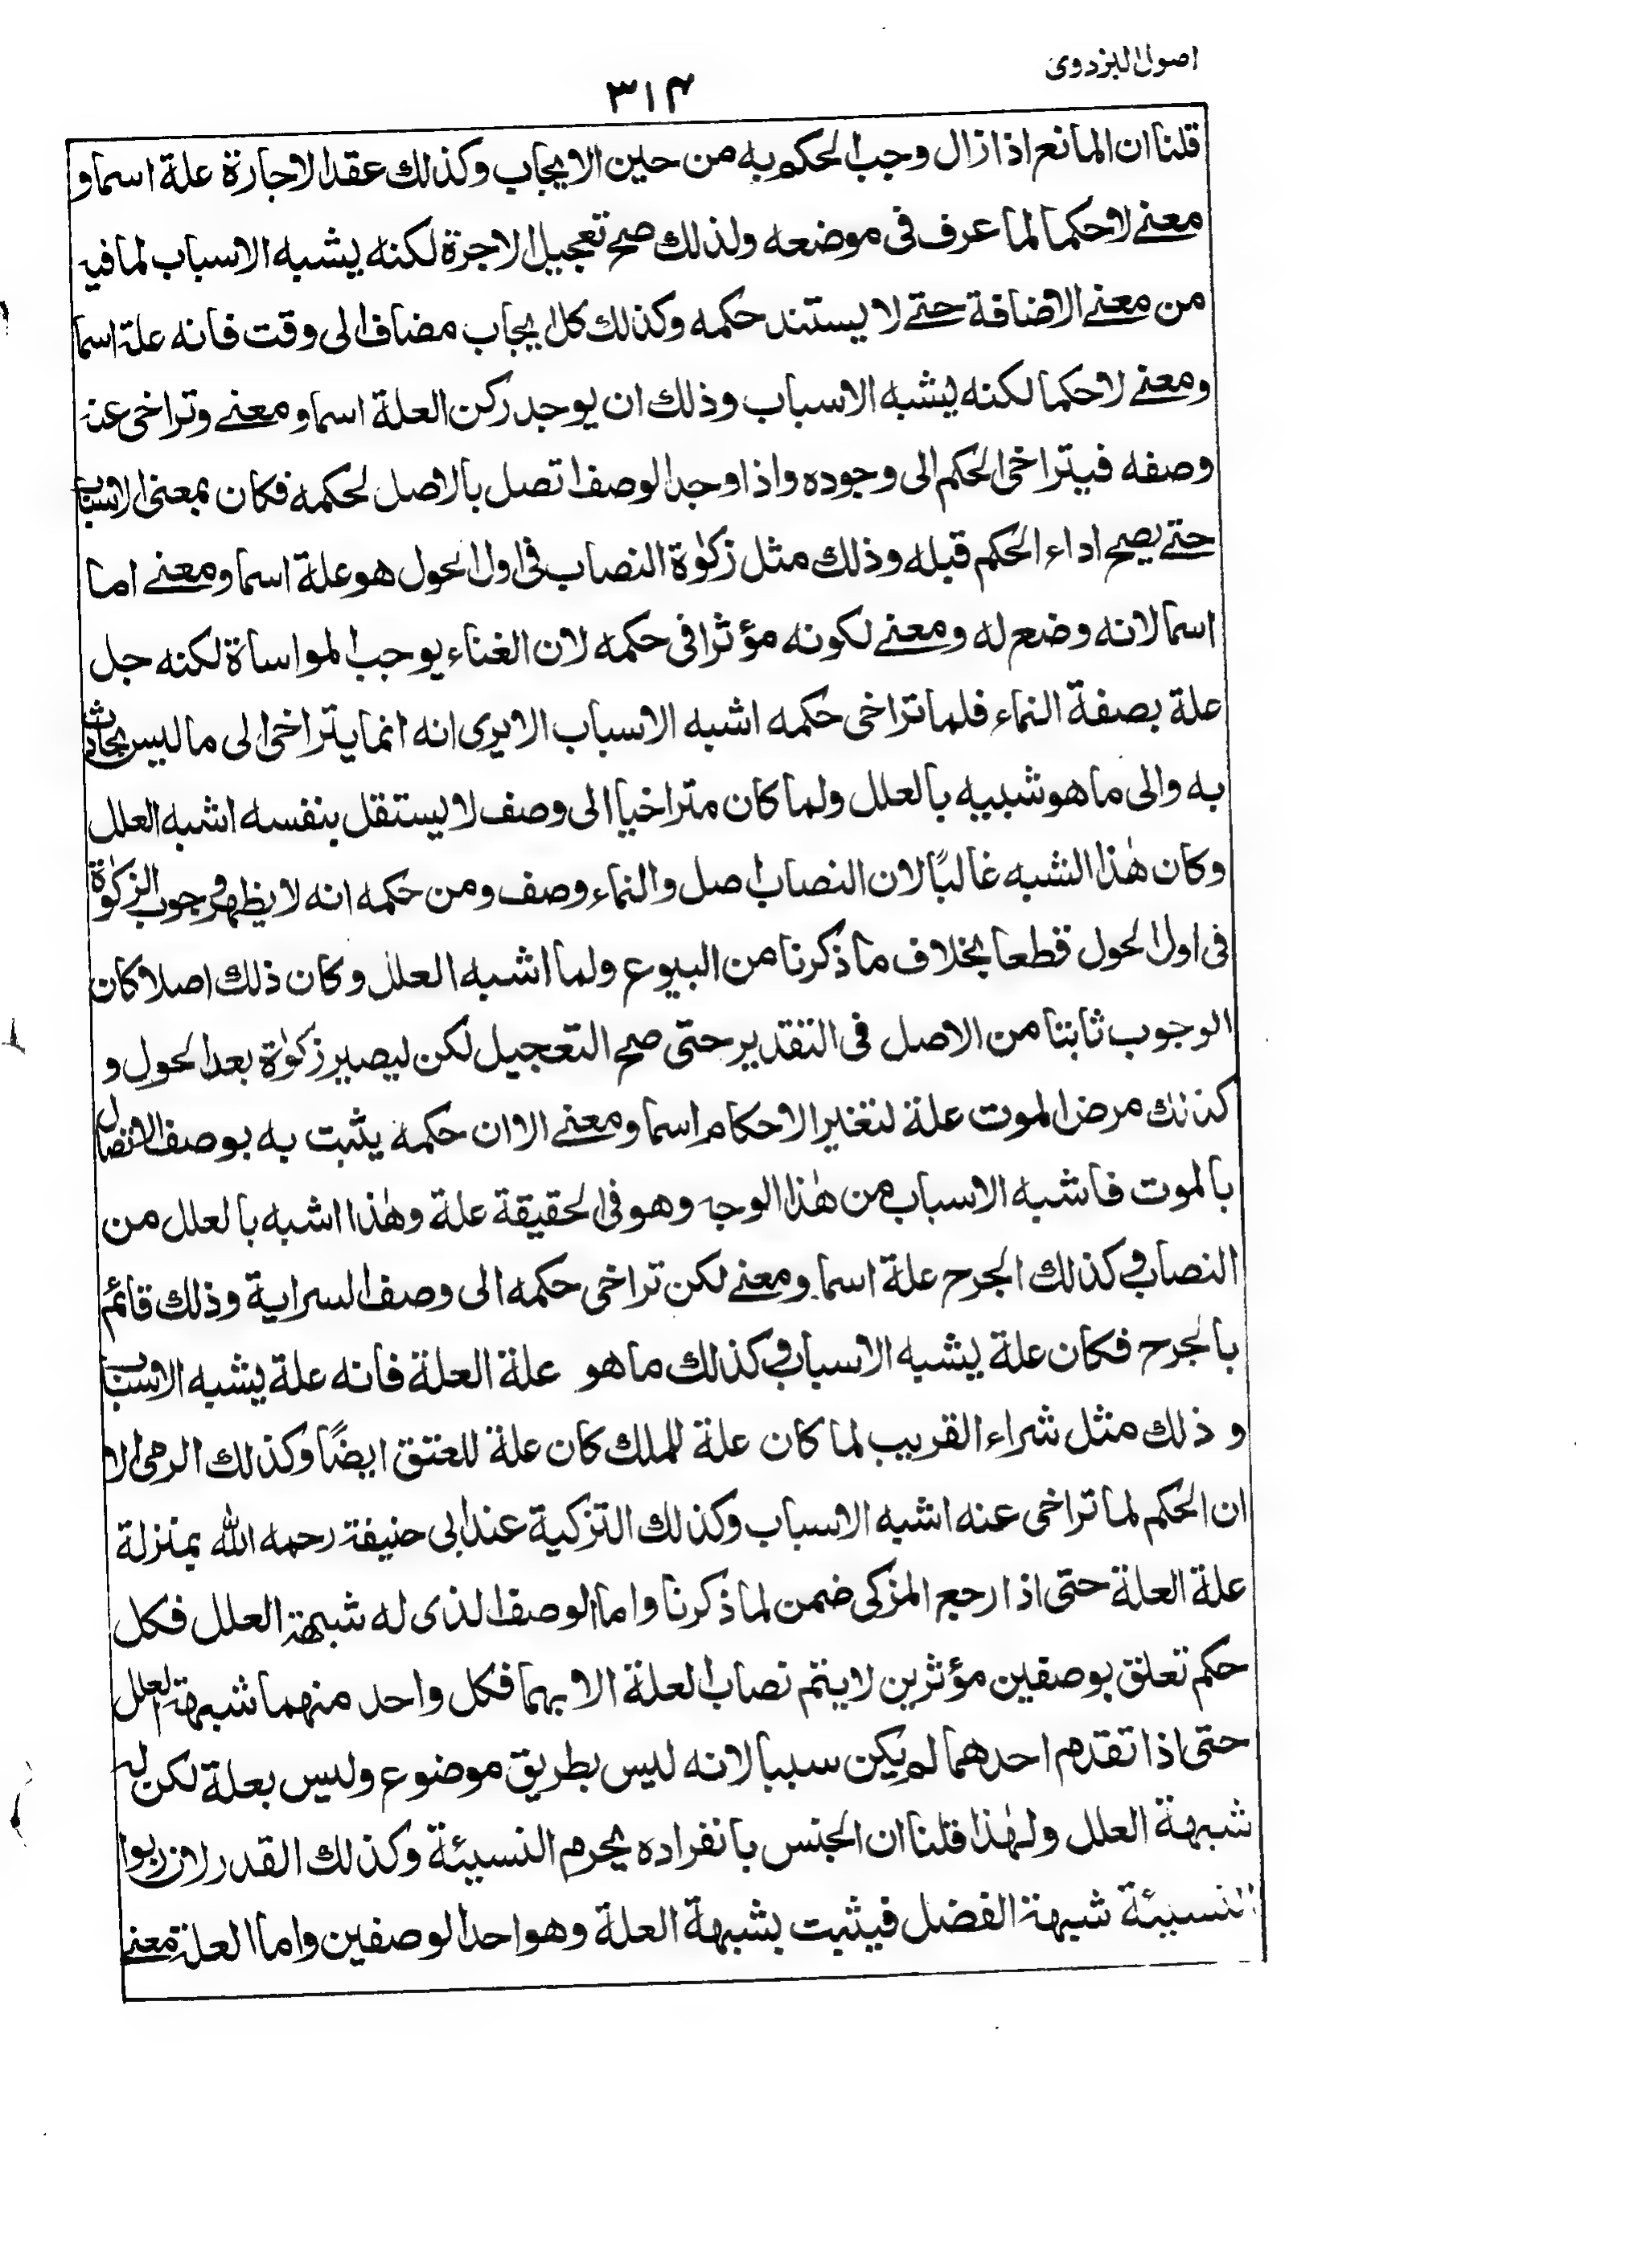 اصول البزدوی
۳۱۴
قلنا ان المانع اذا زال وجب الحکم به من حین الایجاب وکذلك عقد الاجارة علة اسما و
معنے لاحکما لما عرف فی موضعه ولذلك صح تعجیل الاجرة لکنه یشبه الاسباب لما فیه
من معنے الاضافة حتے لا یستند حکمه وکذلك کل ایجاب مضاف الی وقت فانه علة اسما
ومعنے لاحکما لکنه یشبه الاسباب وذلك ان یوجد رکن العلة اسما ومعنے وتراخی عنه
وصفه فیتراخی الحکم الی وجوده واذا وجد الوصف اتصل بالاصل لحکمه فکان بمعنی الاسباب
حتے یصح اداء الحکم قبله وذلك مثل زکوٰة النصاب فی اول الحول هو علة اسما ومعنے اما
اسما لانه وضع له ومعنے لکونه مؤثرا فی حکمه لان الغناء یوجب المواساة لکنه جل
علة بصفة النماء فلما تراخی حکمه اشبه الاسباب الا یری انه انما یتراخی الی ما لیس بحادث
به والی ما هو شبیه بالعلل ولما کان متراخیا الی وصف لا یستقل بنفسه اشبه العلل
وکان هٰذا الشبه غالبًا لان النصاب اصل والنماء وصف ومن حکمه انه لا یظهر وجوب الزکوٰة
فی اول الحول قطعا بخلاف ما ذکرنا من البیوع ولما اشبه العلل وکان ذلك اصلا کان
الوجوب ثابتا من الاصل فی التقدیر حتی صح التعجیل لکن لیصیر زکوٰة بعد الحول و
کذلك مرض الموت علة لتغیر الاحکام اسما ومعنے الا ان حکمه یثبت به بوصف الاتصال
بالموت فاشبه الاسباب من هٰذا الوجه وهو فی الحقیقة علة وهٰذا اشبه بالعلل من
النصاب وکذلك الجرح علة اسما ومعنے لکن تراخی حکمه الی وصف السرایة وذلك قائم
بالجرح فکان علة یشبه الاسباب وکذلك ما هو علة العلة فانه علة یشبه الاسباب
وذلك مثل شراء القریب لما کان علة للملك کان علة للعتق ایضًا وکذلك الرمی الا
ان الحکم لما تراخی عنه اشبه الاسباب وکذلك التزکیة عند ابی حنیفة رحمه الله بمنزلة
علة العلة حتی اذا رجع المزکی ضمن لما ذکرنا واما الوصف الذی له شبهة العلل فکل
حکم تعلق بوصفین مؤثرین لا یتم نصاب العلة الا بهما فکل واحد منهما شبهة العلل
حتی اذا تقدم احدهما لم یکن سببا لانه لیس بطریق موضوع ولیس بعلة لکن له
شبهة العلل ولهٰذا قلنا ان الجنس بانفراده یحرم النسیئة وکذلك القدر لان ربوا
النسیئة شبهة الفضل فیثبت بشبهة العلة وهو احد الوصفین واما العلة معنے